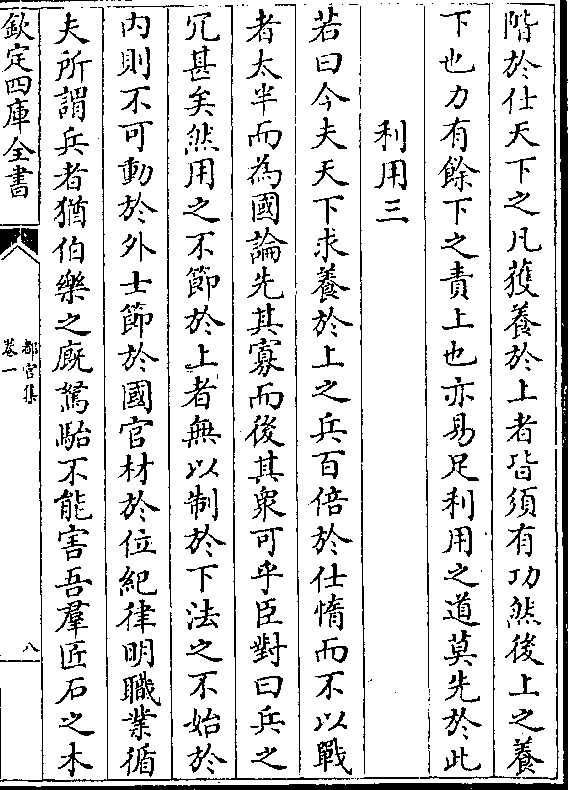 階於仕天下之凡獲養於上者皆須有功然後上之養
下也力有餘下之責上也亦易足利用之道莫先於此
利用三
若曰今夫天下求養於上之兵百倍於仕惰而不以戰
者太半而為國論先其寡而後其衆可乎臣對曰兵之
冗甚矣然用之不節於上者無以制於下法之不始於
内則不可動於外士節於國官材於位紀律明職業循
夫所謂兵者猶伯樂之廐駑駘不能害吾羣匠石之木
欽定四庫全書
都官集
卷一
八